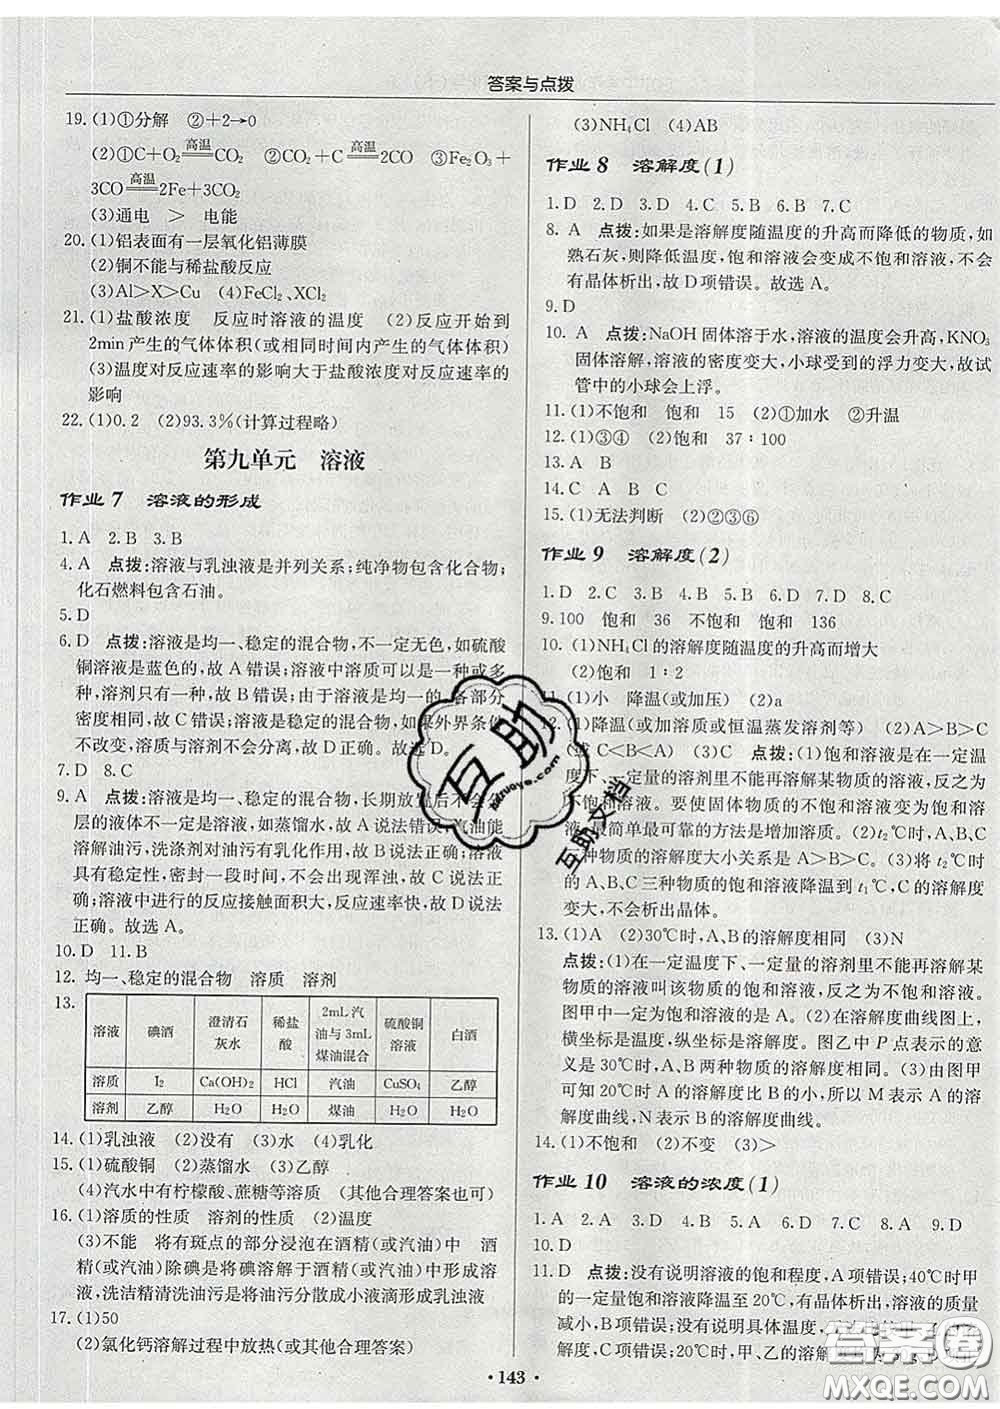 答案与点拨
19. (1)①分解 ②+2→0
(2)①C+O₂=高温=CO₂ ②CO₂+C=高温=2CO ③Fe₂O₃+
3CO=高温=2Fe+3CO₂
(3)通电 > 电能
20. (1)铝表面有一层氧化铝薄膜
(2)铜不能与稀盐酸反应
(3)Al>X>Cu (4)FeCl₂、XCl₂
21. (1)盐酸浓度 反应时溶液的温度 (2)反应开始到
2min 产生的气体体积(或相同时间内产生的气体体积)
(3)温度对反应速率的影响大于盐酸浓度对反应速率的
影响
22. (1)0.2 (2)93.3%(计算过程略)
第九单元 溶液
作业7 溶液的形成
1. A 2. B 3. B
4. A 点拨:溶液与乳浊液是并列关系;纯净物包含化合物;
化石燃料包含石油。
5. D
6. D 点拨:溶液是均一、稳定的混合物,不一定无色,如硫酸
铜溶液是蓝色的,故 A 错误;溶液中溶质可以是一种或多
种,溶剂只有一种,故 B 错误;由于溶液是均一的,各部分
密度相同,故 C 错误;溶液是稳定的混合物,如果外界条件
不改变,溶质与溶剂不会分离,故 D 正确。故选 D。
7. D 8. C
9. A 点拨:溶液是均一、稳定的混合物,长期放置后不会分
层的液体不一定是溶液,如蒸馏水,故 A 说法错误;汽油能
溶解油污,洗涤剂对油污有乳化作用,故 B 说法正确;溶液
具有稳定性,密封一段时间,不会出现浑浊,故 C 说法正
确;溶液中进行的反应接触面积大,反应速率快,故 D 说法
正确。故选 A。
10. D 11. B
12. 均一、稳定的混合物 溶质 溶剂
13.
溶液 碘酒 澄清石灰水 稀盐酸 2mL 汽油与 3mL 煤油混合 硫酸铜溶液 白酒
溶质 I₂ Ca(OH)₂ HCl 汽油 CuSO₄ 乙醇
溶剂 乙醇 H₂O H₂O 煤油 H₂O H₂O
14. (1)乳浊液 (2)没有 (3)水 (4)乳化
15. (1)硫酸铜 (2)蒸馏水 (3)乙醇
(4)汽水中有柠檬酸、蔗糖等溶质 (其他合理答案也可)
16. (1)溶质的性质 溶剂的性质 (2)温度
(3)不能 将有斑点的部分浸泡在酒精(或汽油)中 酒
精(或汽油)除碘是将碘溶解于酒精(或汽油)中形成溶
液,洗洁精洗油污是将油污分散成小液滴形成乳浊液
17. (1)50
(2)氯化钙溶解过程中放热(或其他合理答案)
(3)NH₄Cl (4)AB
作业8 溶解度(1)
1. D 2. D 3. D 4. C 5. B 6. B 7. C
8. A 点拨:如果是溶解度随温度的升高而降低的物质,如
熟石灰,则降低温度,饱和溶液会变成不饱和溶液,不会
有晶体析出,故 D 项错误。故选 A。
9. D
10. A 点拨:NaOH 固体溶于水,溶液的温度会升高,KNO₃
固体溶解,溶液的密度变大,小球受到的浮力变大,故试
管中的小球会上浮。
11. (1)不饱和 饱和 15 (2)①加水 ②升温
12. (1)③④ (2)饱和 37∶100
13. A B
14. C A B C
15. (1)无法判断 (2)②③⑥
作业9 溶解度(2)
1. D 2. C 3. B 4. A 5. B 6. D 7. D 8. C
9. 100 饱和 36 不饱和 饱和 136
10. (1)NH₄Cl 的溶解度随温度的升高而增大
(2)饱和 1∶2
11. (1)小 降温(或加压) (2)a
12. (1)降温(或加溶质或恒温蒸发溶剂等) (2)A>B>C
(或 C<B<A) (3)C 点拨:(1)饱和溶液是在一定温
度下、一定量的溶剂里不能再溶解某物质的溶液,反之为
不饱和溶液。要使固体物质的不饱和溶液变为饱和溶
液,最简单最可靠的方法是增加溶质。(2)t₂℃时,A、B、C
三种物质的溶解度大小关系是 A>B>C。(3)将 t₂℃时
的 A、B、C 三种物质的饱和溶液降温到 t₁℃,C 的溶解度
变大,不会析出晶体。
13. (1)A (2)30℃时,A、B 的溶解度相同 (3)N
点拨:(1)在一定温度下、一定量的溶剂里不能再溶解某
物质的溶液叫该物质的饱和溶液,反之为不饱和溶液。
图甲中一定为饱和溶液的是 A。(2)在溶解度曲线图上,
横坐标是温度,纵坐标是溶解度。图乙中 P 点表示的意
义是 30℃时,A、B 两种物质的溶解度相同。(3)由图甲
可知 20℃时 A 的溶解度比 B 的溶解度大,所以 M 表示 A
的溶解度曲线,N 表示 B 的溶解度曲线。
14. (1)不饱和 (2)不变 (3)>
作业10 溶液的浓度(1)
1. A 2. A 3. D 4. B 5. D 6. B 7. C 8. A 9. D
10. D
11. D 点拨:没有说明溶液的饱和程度,A 项错误;40℃时甲
的一定量饱和溶液降温至 20℃,有晶体析出,溶液的质量
减小,B 项错误;没有说明具体温度,
解度,C 项错误;20℃时,甲、乙的溶解度
· 143 ·
互助
互助文档
答案圈
MXQE.COM